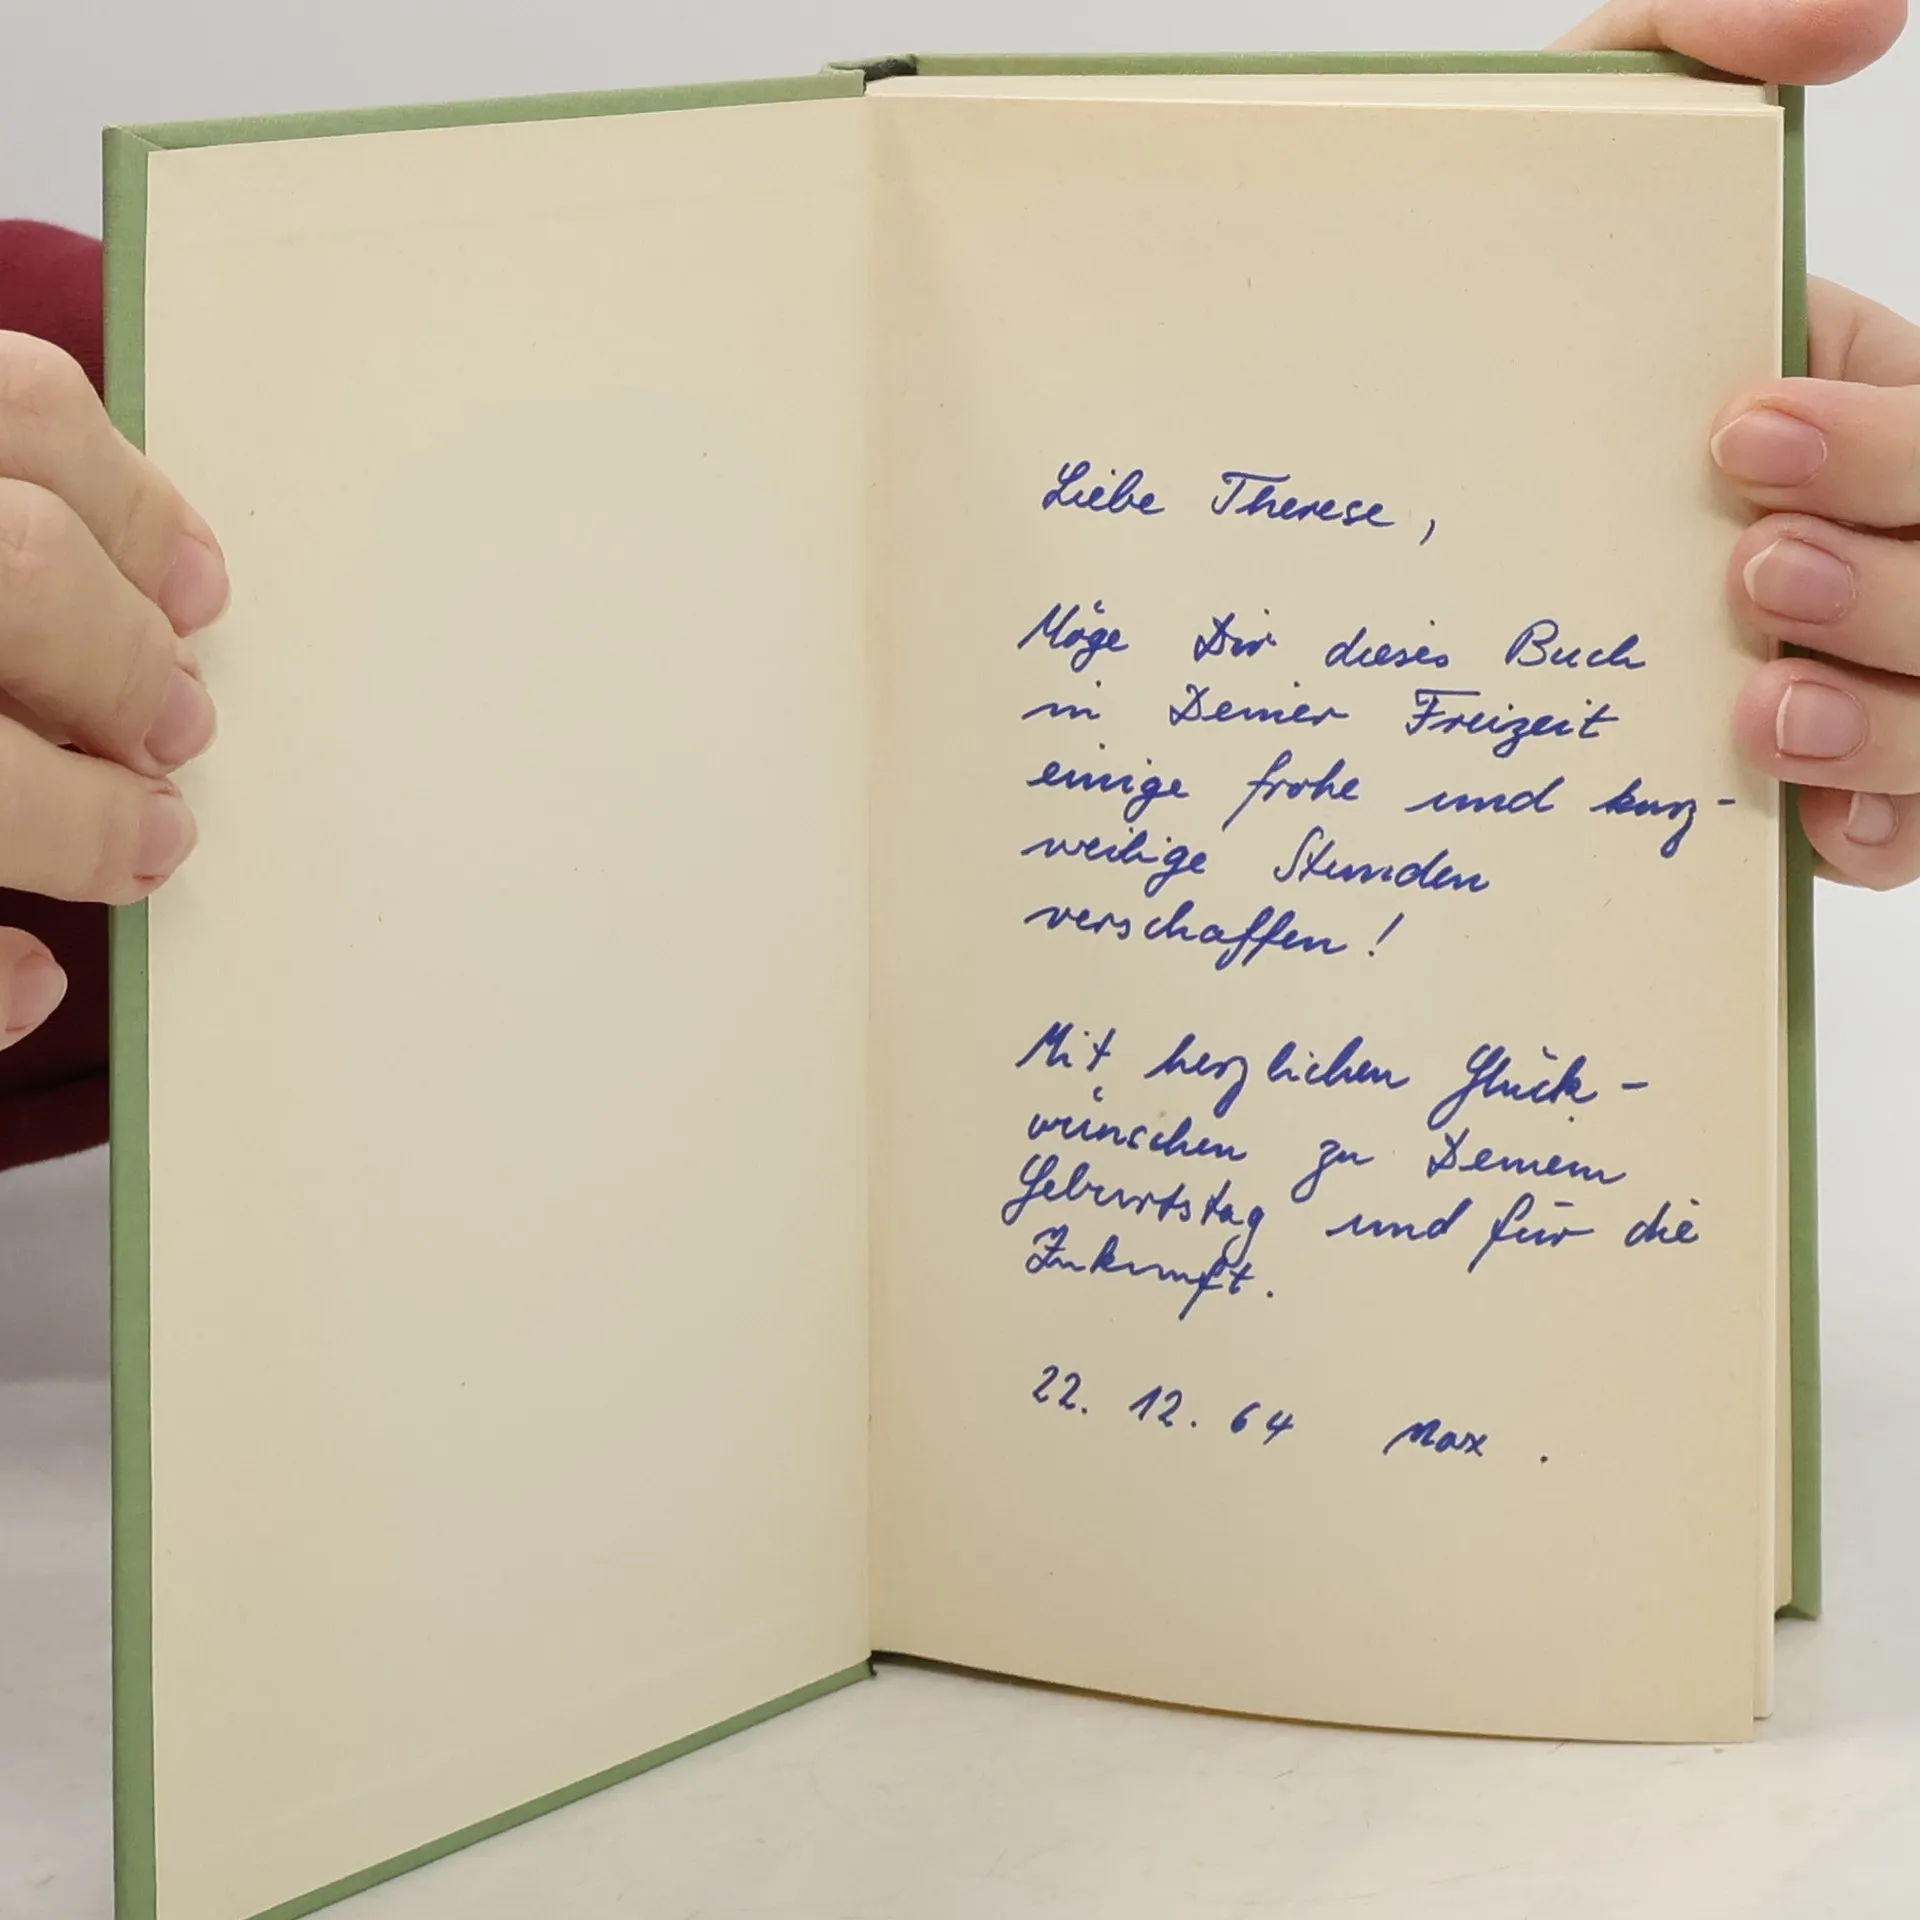 Liebe Therese,
Möge Dir dieses Buch
in Deiner Freizeit
einige frohe und kurz-
weilige Stunden
verschaffen!
Mit herzlichen Glück-
wünschen zu Deinem
Geburtstag und für die
Zukunft.
22. 12. 64 Max.